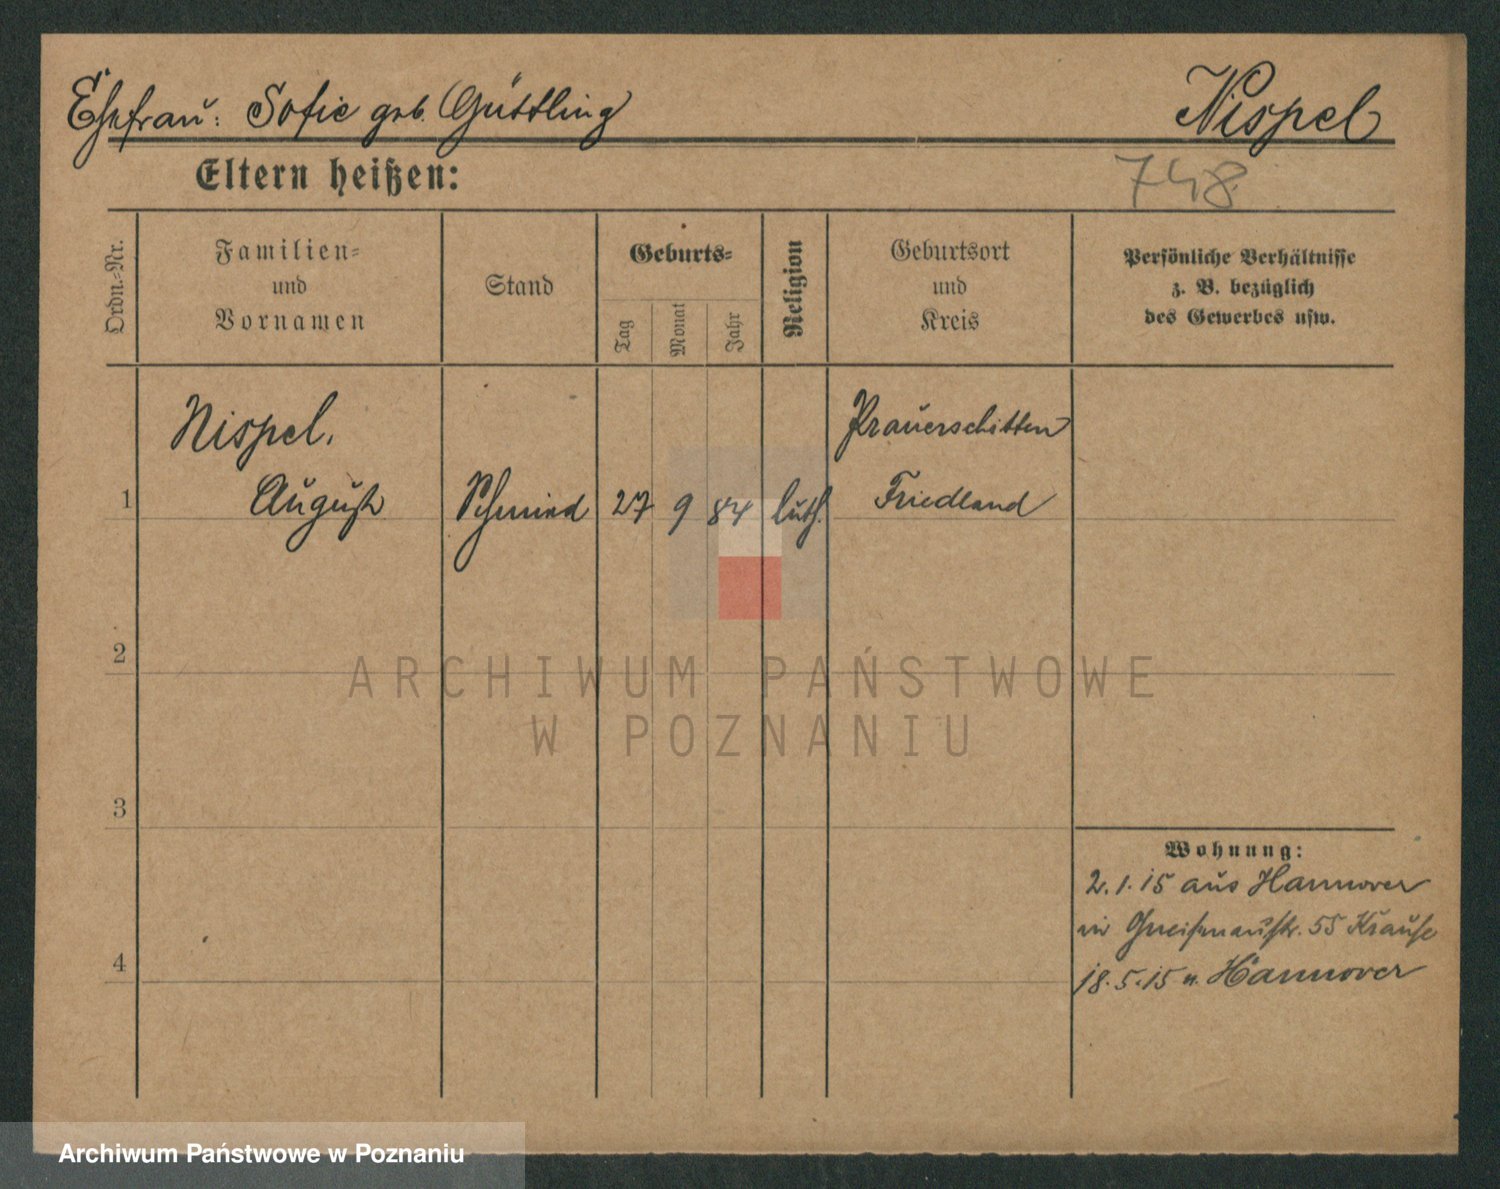 Ehefrau: Sofie geb. Güttling
Nispel
Eltern heißen:
748
Ordn.-Nr.
Familien-
und
Vornamen
Stand
Geburts-
Tag
Monat
Jahr
Religion
Geburtsort
und
Kreis
Persönliche Verhältnisse
z. B. bezüglich
des Gewerbes usw.
Nispel,
August
1
Schmied
27
9
84
luth.
Prauerschitten
Friedland
2
ARCHIWUM PAŃSTWOWE
W POZNANIU
3
4
Wohnung:
2.1.15 aus Hannover
in Gneisenaustr. 55 Krause
18.5.15 n. Hannover
Archiwum Państwowe w Poznaniu